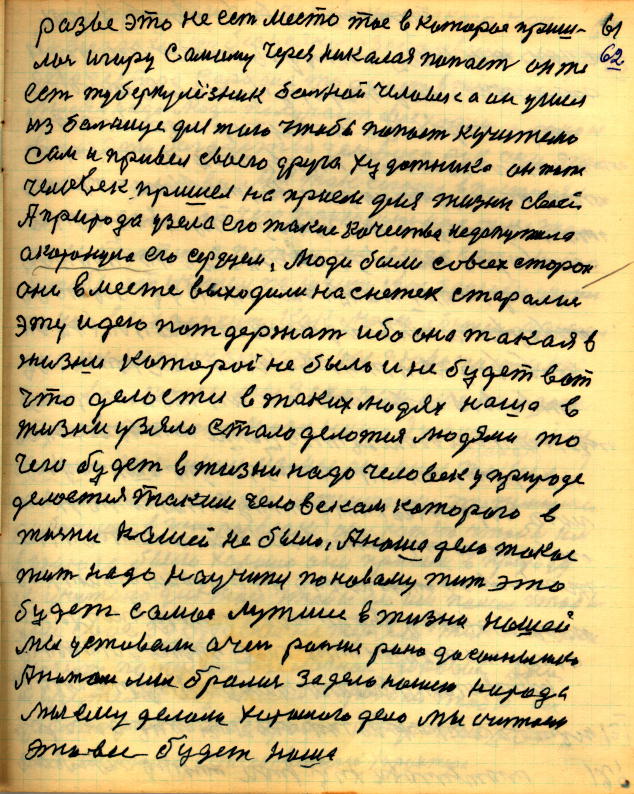 разве это не ест место тое в которое приш- 61
лои игору Самому Через николая попает он же 62
ест туберкулёзник болной человек а он ушел
из болнице для того чтобы попаст кучителю
Сам и привел своего друга художника он тот
человек пришел на прием для жизни своей
А природа узела его такие качества недопустила
окоронула его сердцем, Люди были совсех сторон
они вместе выходили на снежек старалис
эту идею потдержат ибо она такая в
жизни которой не было и не будет вот
что делости в таких людях наша в
жизни узяло стало делотся людями то
чего будет в жизни надо человек у природе
делостся таким человекам которого в
жизни нашей не было, А наша дело такое
жит надо научится по новаму жит это
будет самое лутшие в жизни нашей
мы уставали очен ранше рано до солнышка
А потом мы бралис за дело нашего народа
мы ему делали хорошого дело мы считали
это все будет наша